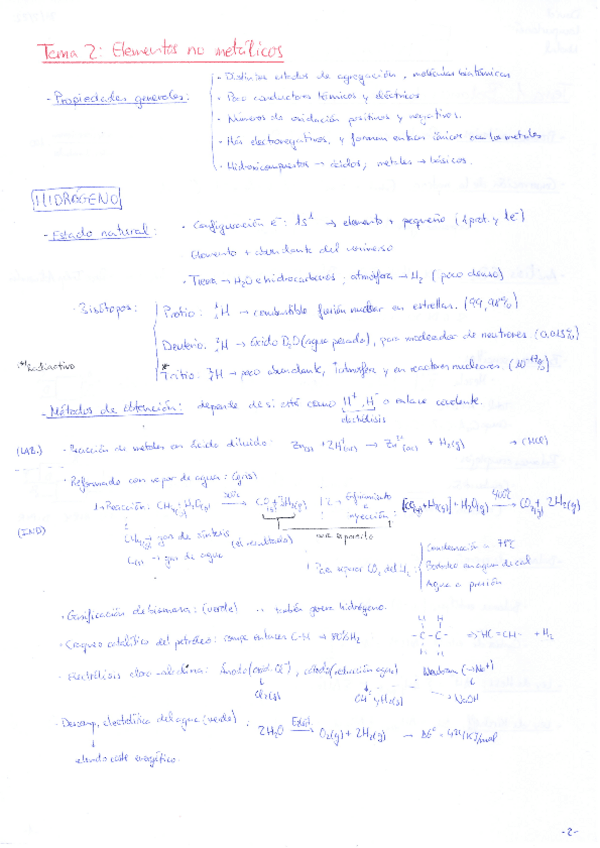 Tema 2: Elementos no metálicos
- Propiedades generales:
· Distintos estados de agregación, moléculas biatómicas
· Poco conductores térmicos y eléctricos
· Números de oxidación positivos y negativos.
· Más electronegativos, y forman enlaces iónicos con los metales
· Hidroxicompuestos → ácidos; metales → básicos.
HIDRÓGENO
- Estado natural:
· Configuración e⁻: 1s¹ → elemento + pequeño (1 prot. y 1e⁻)
Elemento + abundante del universo
· Tierra → H₂O e hidrocarburos; atmósfera → H₂ (poco denso)
· Isótopos:
Protio: ¹₁H → combustible fusión nuclear en estrellas. (99,98%)
Deuterio: ²₁H → óxido D₂O (agua pesada), para moderador de neutrones (0,015%)
*Radiactivo
* Tritio: ³₁H → poco abundante, atmósfera y en reactores nucleares. (10⁻¹⁷%)
- Métodos de obtención: depende de si está como H⁺, H⁻ o enlace covalente.
electrólisis
(LAB.) · Reacción de metales con ácido diluido: Zn(s) + 2H⁺(ac) → Zn²⁺(ac) + H₂(g)
· Reformado con vapor de agua: (gris)
(IND)
1. Reacción: CH₄(g) + H₂O(g) → CO(g) + 3H₂(g)
2. Enfriamiento e inyección
[CO(g) + H₂(g)] + H₂O(g) → CO₂(g) + 2H₂(g)
→ gas de síntesis (el resultado)
→ gas de agua
Para separar CO₂ del H₂:
Condensación a 78ºC
Borboteo en agua de cal
Agua a presión
· Gasificación de biomasa: (verde) también genera hidrógeno.
· Craqueo catalítico del petróleo: rompe enlaces C-H → 80% H₂
H H
- C - C -
H H
⇒ HC=CH + H₂
· Electrólisis cloro-alcalina: Ánodo (oxid. Cl⁻), cátodo (reducción agua)
Cl₂(g)
OH⁻ y H₂(g)
NaOH
· Descomp. electrolítica del agua (verde): 2H₂O → O₂(g) + 2H₂(g) → ΔG° = 474 KJ/mol
elevado coste energético.
-2-